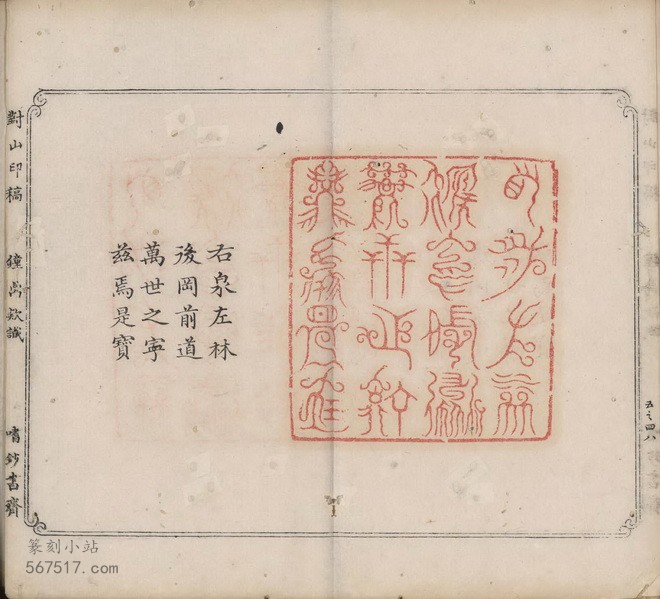 右泉左林
後岡前道
萬世之寧
茲焉是寶
對山印稿
鐘鼎款識
嘯鈔書齋
五之四八
篆刻小站
567517.com